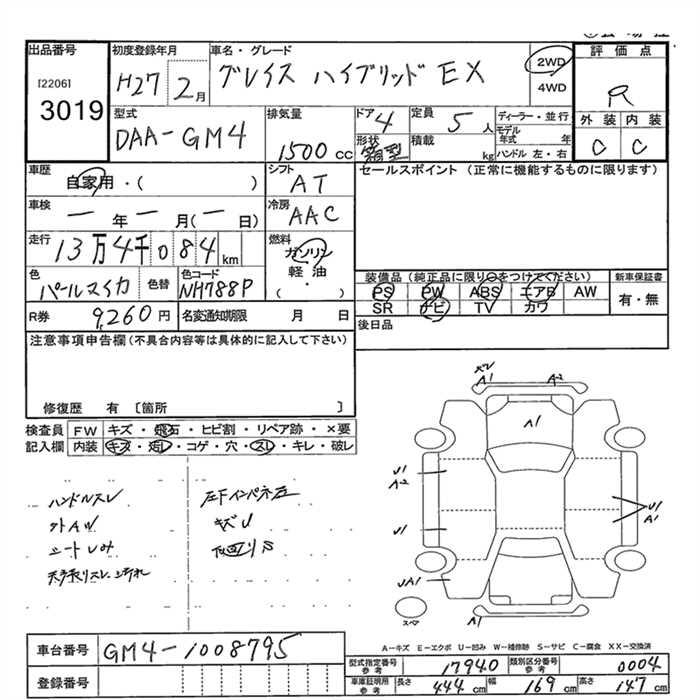 出品番号
[2206]
3019
初度登録年月
H27 2月
車名・グレード
グレイス ハイブリッド EX
2WD
4WD
評価点
R
外装 内装
C C
型式
DAA-GM4
排気量
1500 cc
ドア 4
形状
箱型
定員
5 人
積載
kg
ディーラー・並行
モデル年式 年
ハンドル 左・右
車歴
自家用・( )
シフト
AT
セールスポイント (正常に機能するものに限ります)
車検
ー 年 ー 月(ー 日)
冷房
AAC
走行
13万4千084 km
燃料
ガソリン
軽油
( ・ )
色
パールマイカ
色替
色コード
NH788P
装備品(純正品に限り○をつけてください)
新車保証書
PS PW ABS エアB AW
有・無
SR ナビ TV カワ
R券
9,260円
名変通知期限 月 日
後日品
注意事項申告欄(不具合内容等は具体的に記入して下さい)
修復歴 有 〔箇所 〕
検査員
記入欄
FW キズ・飛石・ヒビ割・リペア跡・×要
内装 キズ・汚レ・コゲ・穴・スレ・キレ・破レ
ハンドルスレ
外AU
A1 A-2
A1
U1
A-2
U1
UA1
U1
A1
スペア
A-キズ E-エクボ U-凹み W-補修跡 S-サビ C-腐食 XX-交換済
車台番号
GM4-1008795
登録番号
型式指定番号
参考
17940
類別区分番号
参考
0004
車庫証明用
参考
長さ 444 cm 幅 169 cm 高さ 147 cm